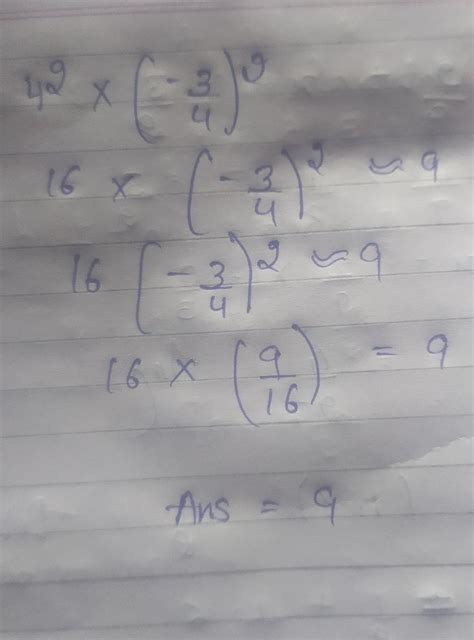 4² × (-3/4)²
16 × (-3/4)² ≈ 9
16 (-3/4)² ≈ 9
16 × (9/16) = 9
Ans = 9